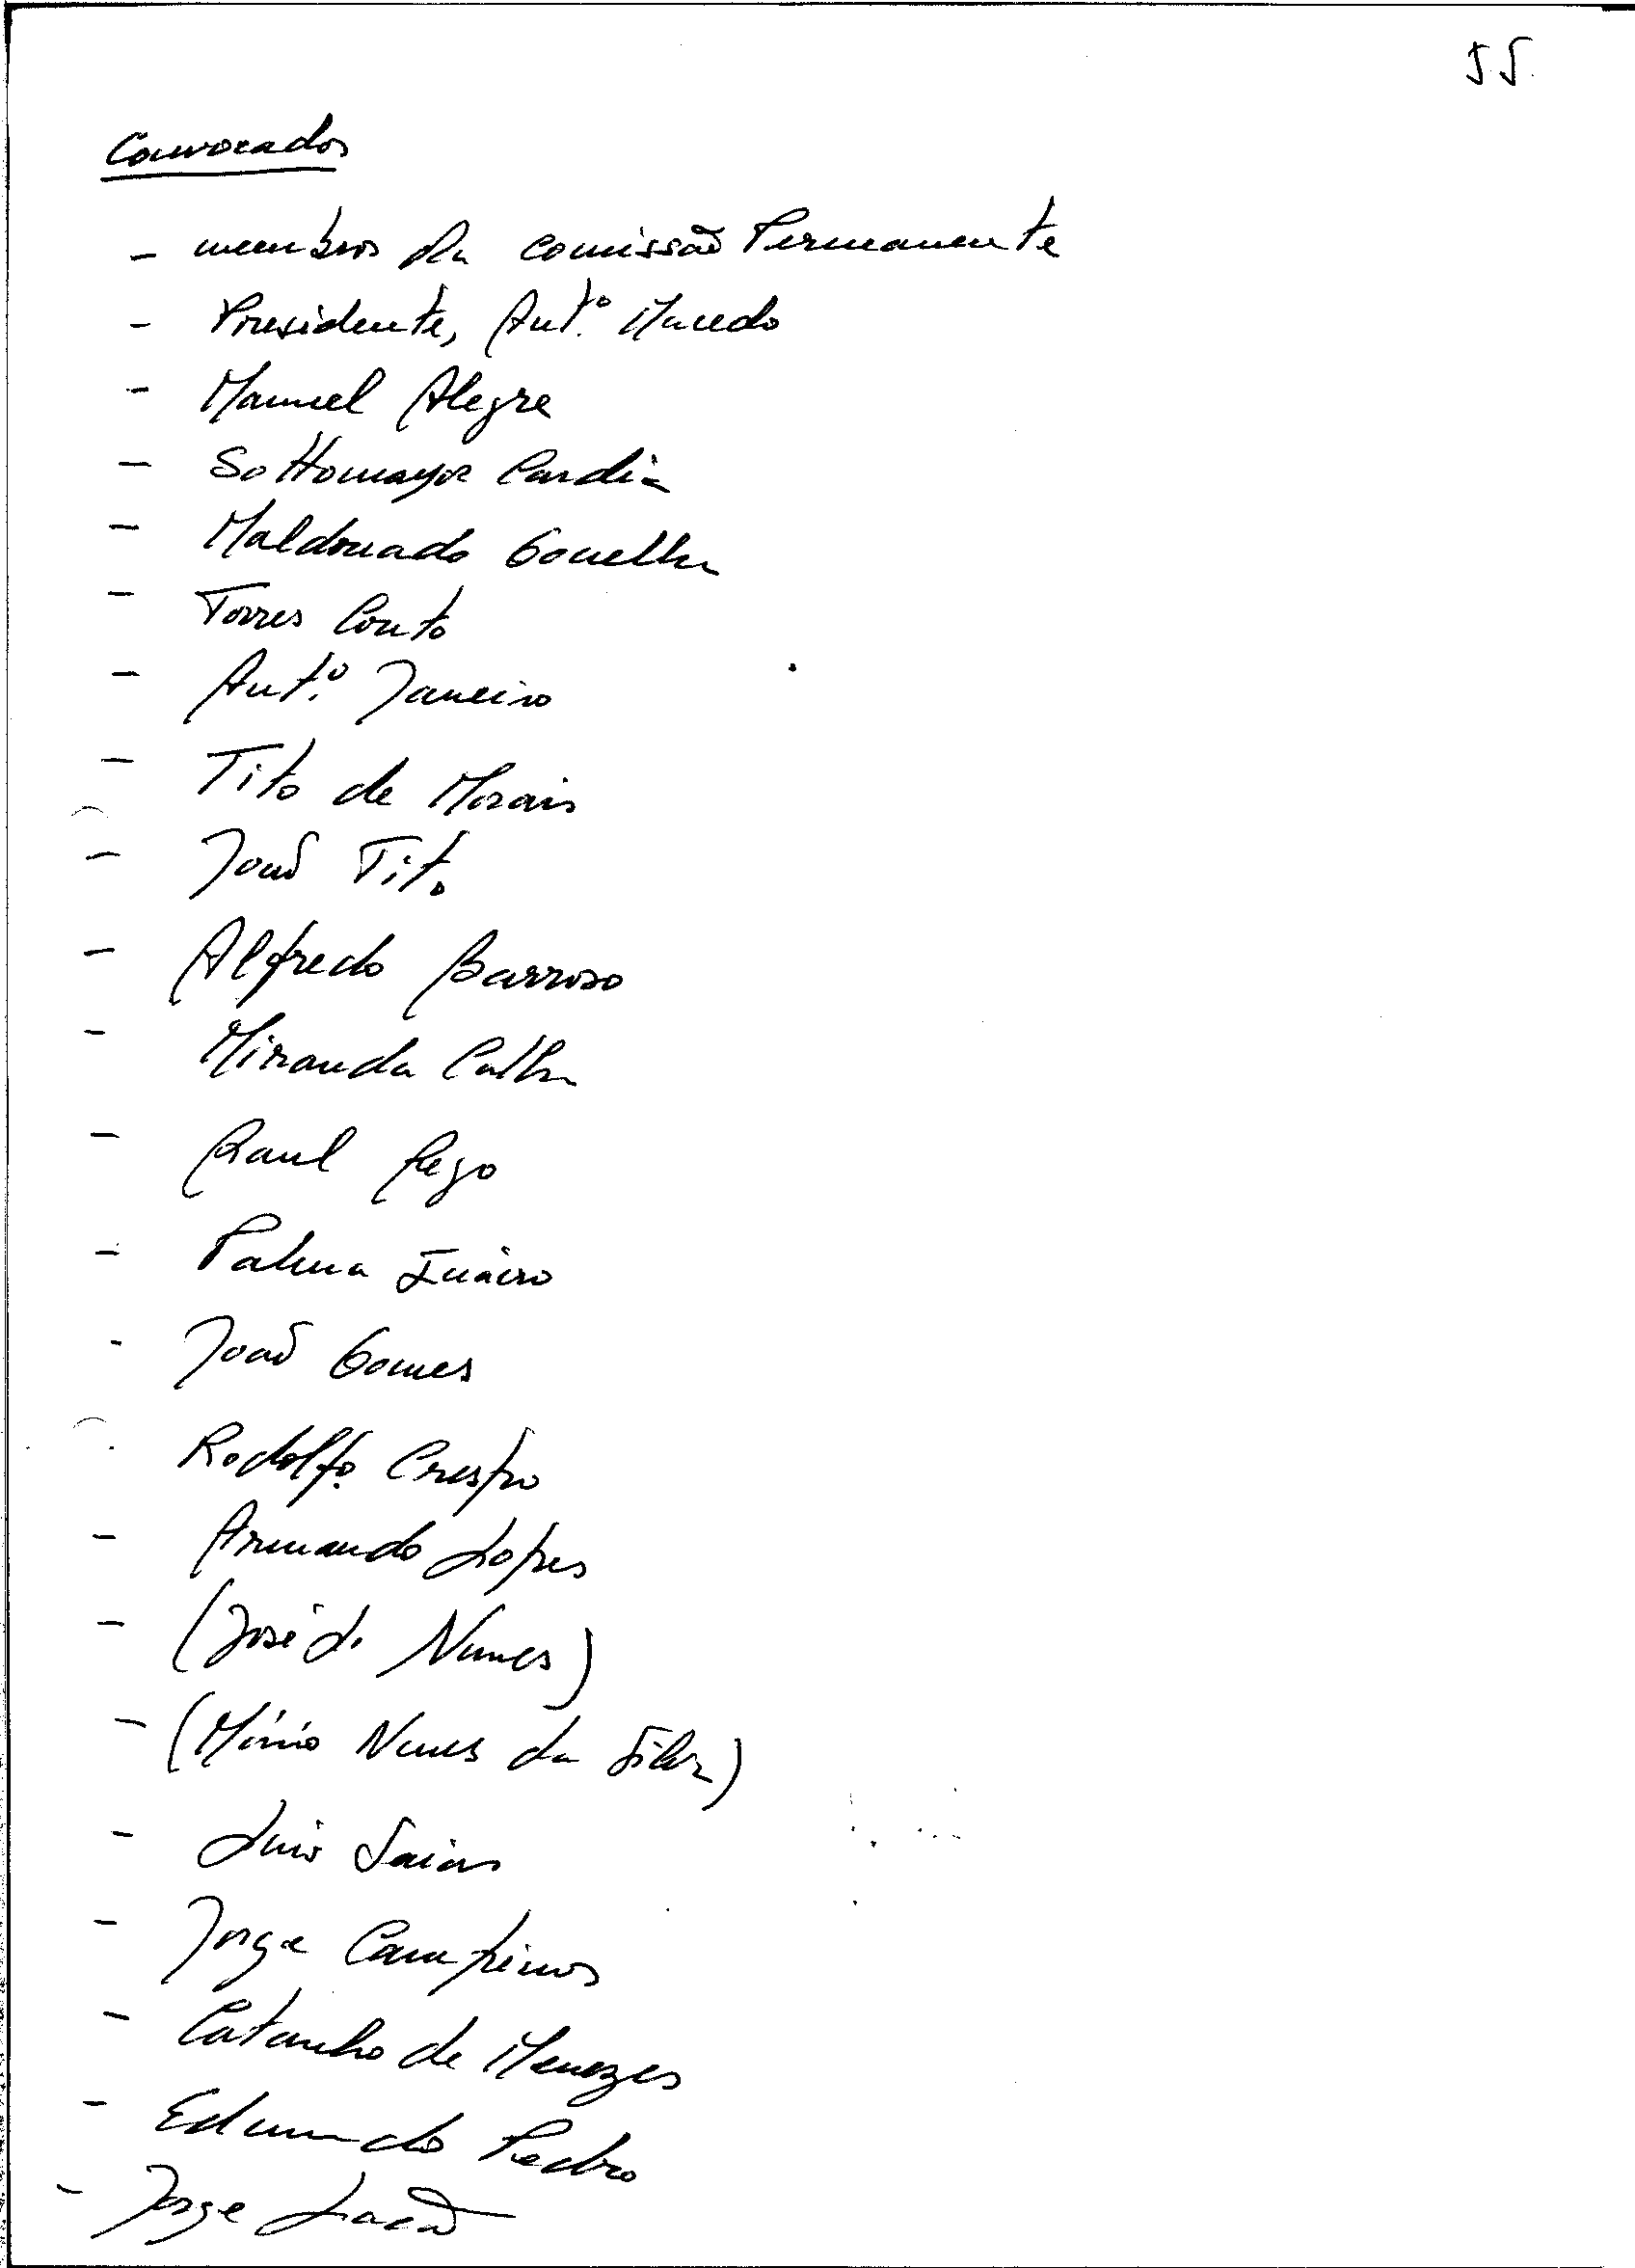 55
Convocados
- membros da Comissão Permanente
- Presidente, Antº. Macedo
- Manuel Alegre
- Sottomayor Cardia
- Maldonado Gonelha
- Torres Couto
- Antº. Janeiro
- Tito de Morais
- João Tito
- Alfredo Barroso
- Miranda Calha
- Raul Rego
- Palma Inácio
- João Gomes
- Rodolfo Crespo
- Armando Lopes
- (José L. Nunes)
- (Mário Nunes da Silva)
- Luis Saias
- Jorge Campinos
- Catanho de Menezes
- Edmundo Pedro
- Jorge Lacão